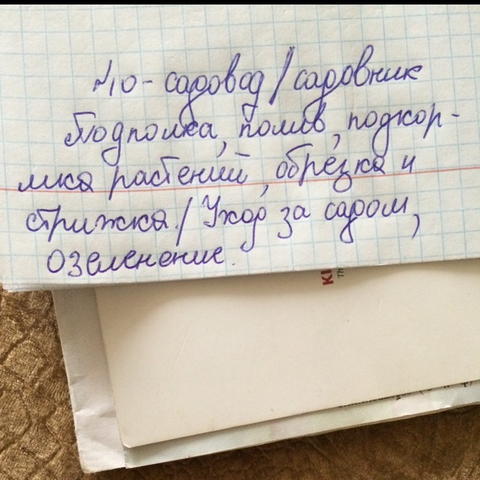 №10-садовод/садовник
Подполка, полив, подкор-
мка растений, обрезка и
стрижка./ Уход за садом,
озеленение.
KI